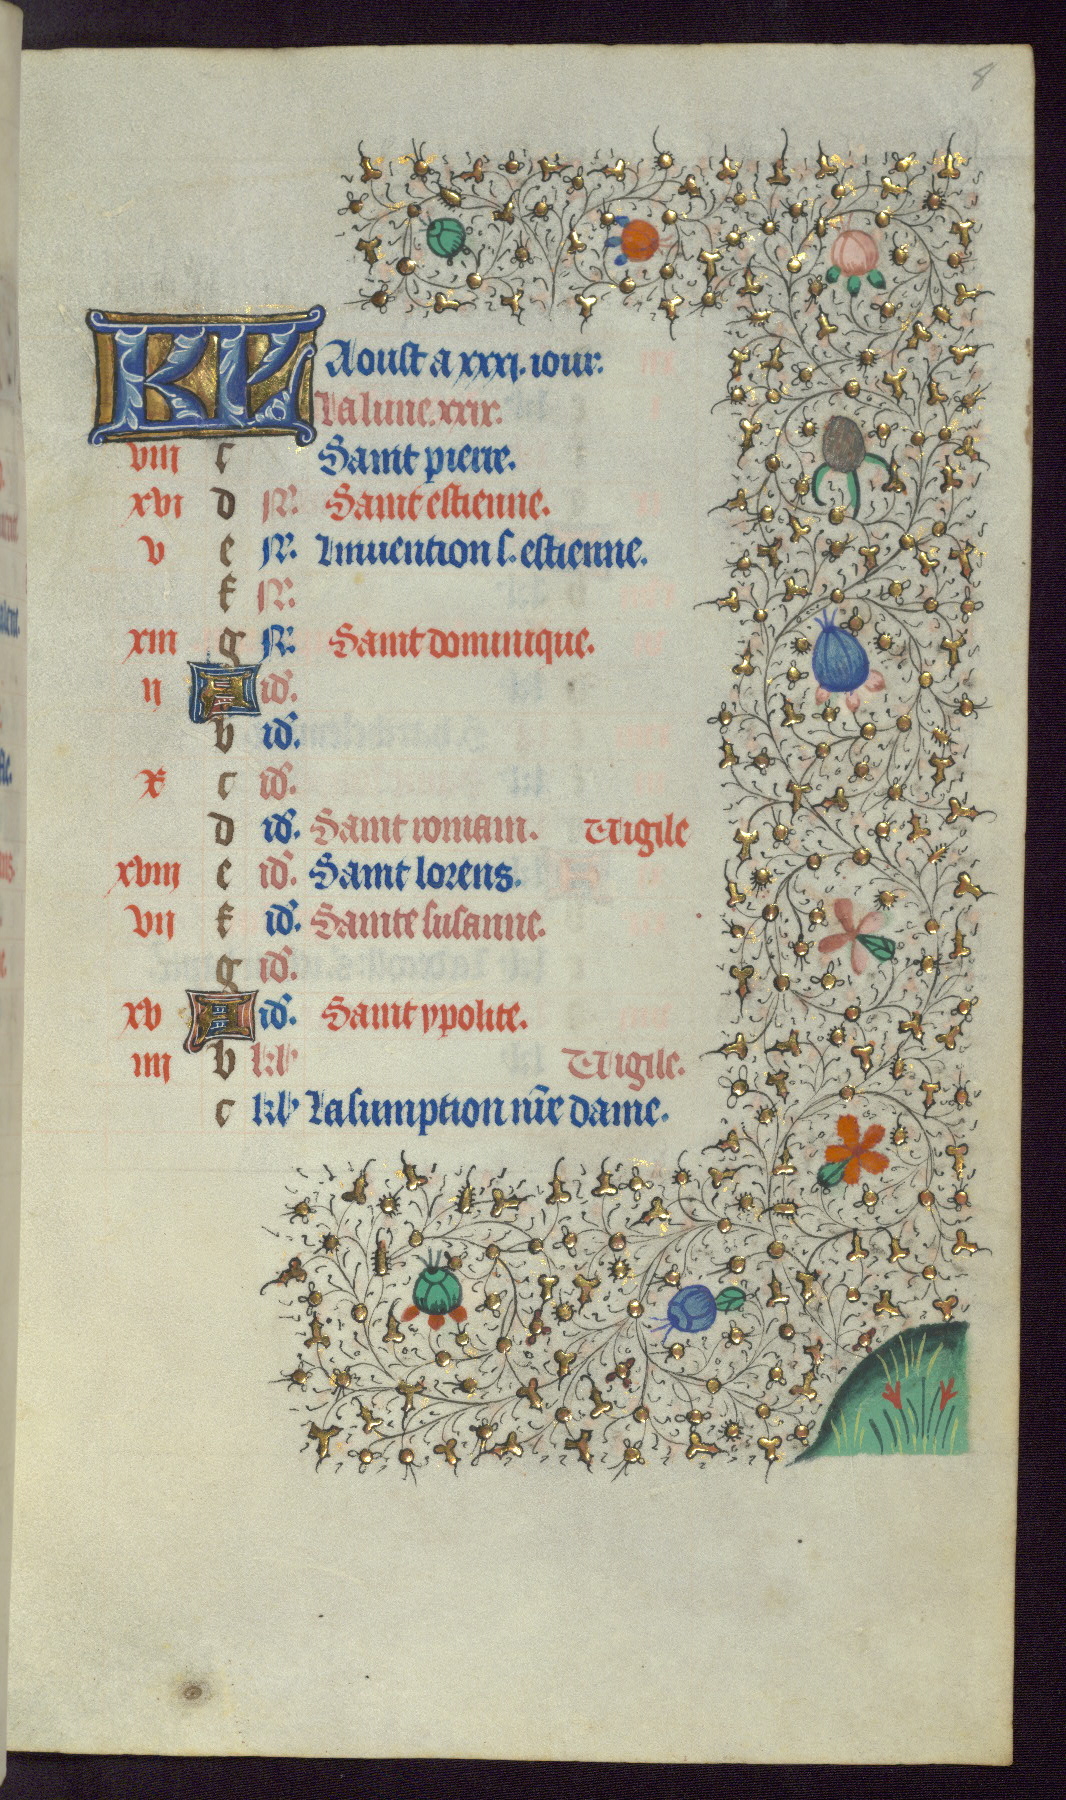 8
KL Aoust a xxxi. iour.
La lune. xxix.
viii c Saint pierre.
xvi d N. Saint estienne.
v e N. Inuention s. estienne.
f N.
xiii g N. Saint dominique.
ii A id.
b id.
x c id.
d id. Saint romain. Vigile
xviii e id. Saint lorens.
vii f id. Sainte susanne.
g id.
xv A id. Saint ypolite.
iiii b kl' Vigile.
c kl' Lasumption nr̄e dame.